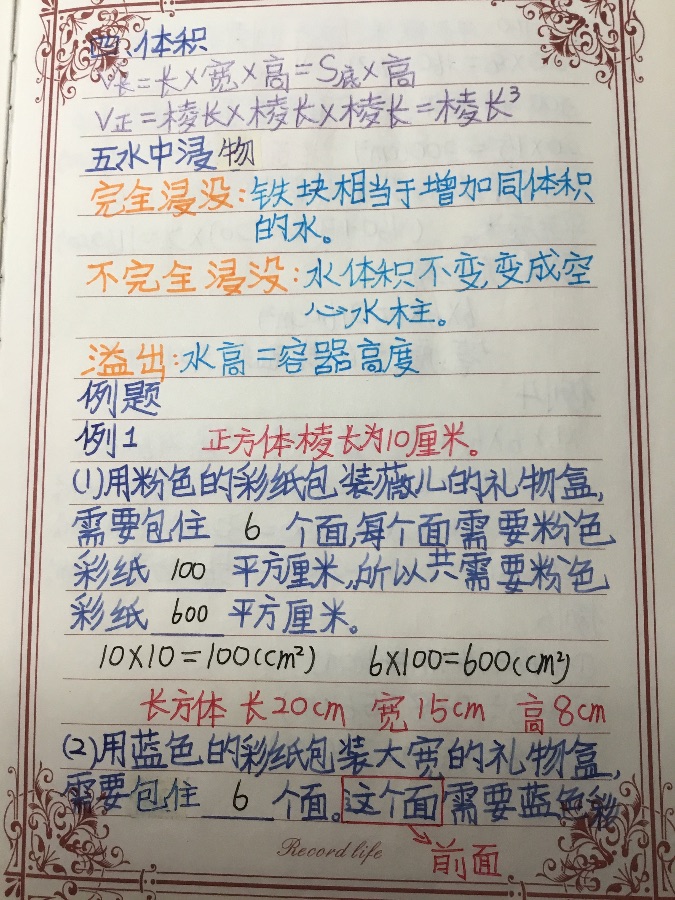 四、体积
V长=长×宽×高=S底×高
V正=棱长×棱长×棱长=棱长³
五水中浸物
完全浸没:铁块相当于增加同体积
的水。
不完全浸没:水体积不变,变成空
心水柱。
溢出:水高=容器高度
例题
例1 正方体棱长为10厘米。
(1)用粉色的彩纸包装薇儿的礼物盒,
需要包住 6 个面,每个面需要粉色
彩纸 100 平方厘米,所以共需要粉色
彩纸 600 平方厘米。
10×10=100(cm²) 6×100=600(cm²)
长方体 长20cm 宽15cm 高8cm
(2)用蓝色的彩纸包装大宽的礼物盒,
需要包住 6 个面。这个面需要蓝色彩
前面
Record life